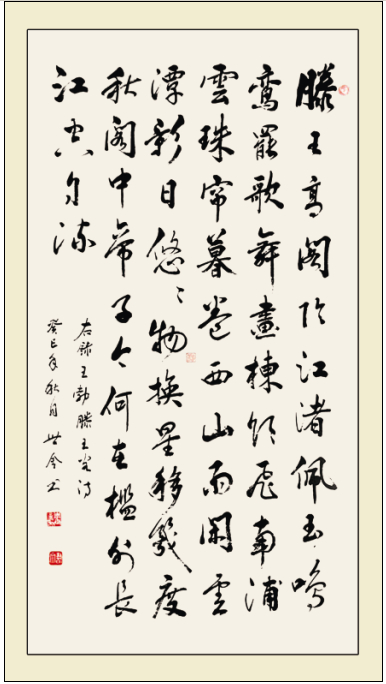 滕王高阁临江渚佩玉鸣
鸾罷歌舞畫棟朝飞南浦
雲珠帘暮卷西山雨閑雲
潭影日悠々物换星移幾度
秋阁中帝子今何在檻外長
江空自流
右録王勃滕王阁詩
癸巳年秋月世全书